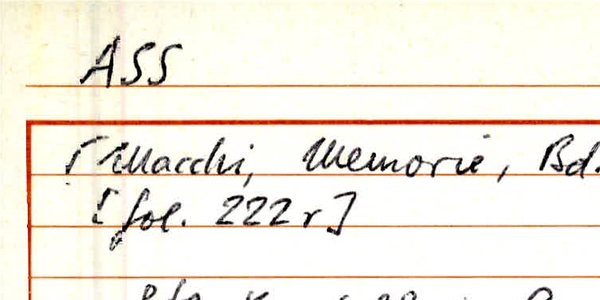 ASS
[Macchi, Memorie, Bd.
[fol. 222r]